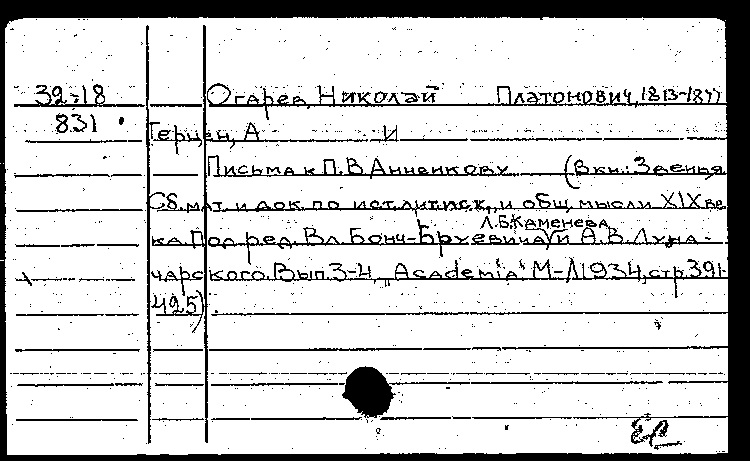 32-18 Огарев, Николай Платонович, 1813-1877
831 Герцен, А И
Письма к П.В Анненкову (Вкн.: Звенья
Сб. мат. и док. по ист. лит., иск., и общ. мысли XIX ве
Л.Б.Каменева
ка. Под ред. Вл. Бонч-Бруевича и А.В. Луна-
чарского. Вып 3-4, „Academia" М-Л 1934, стр 391-
425).